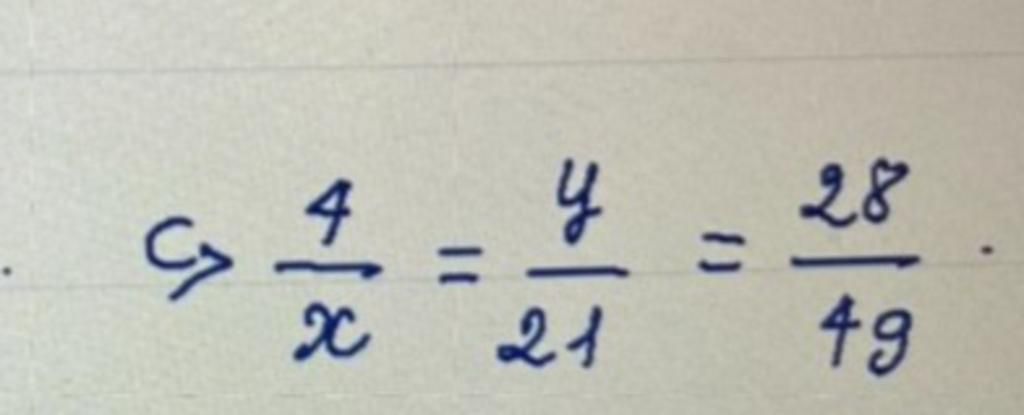 c) 4/x = y/21 = 28/49.